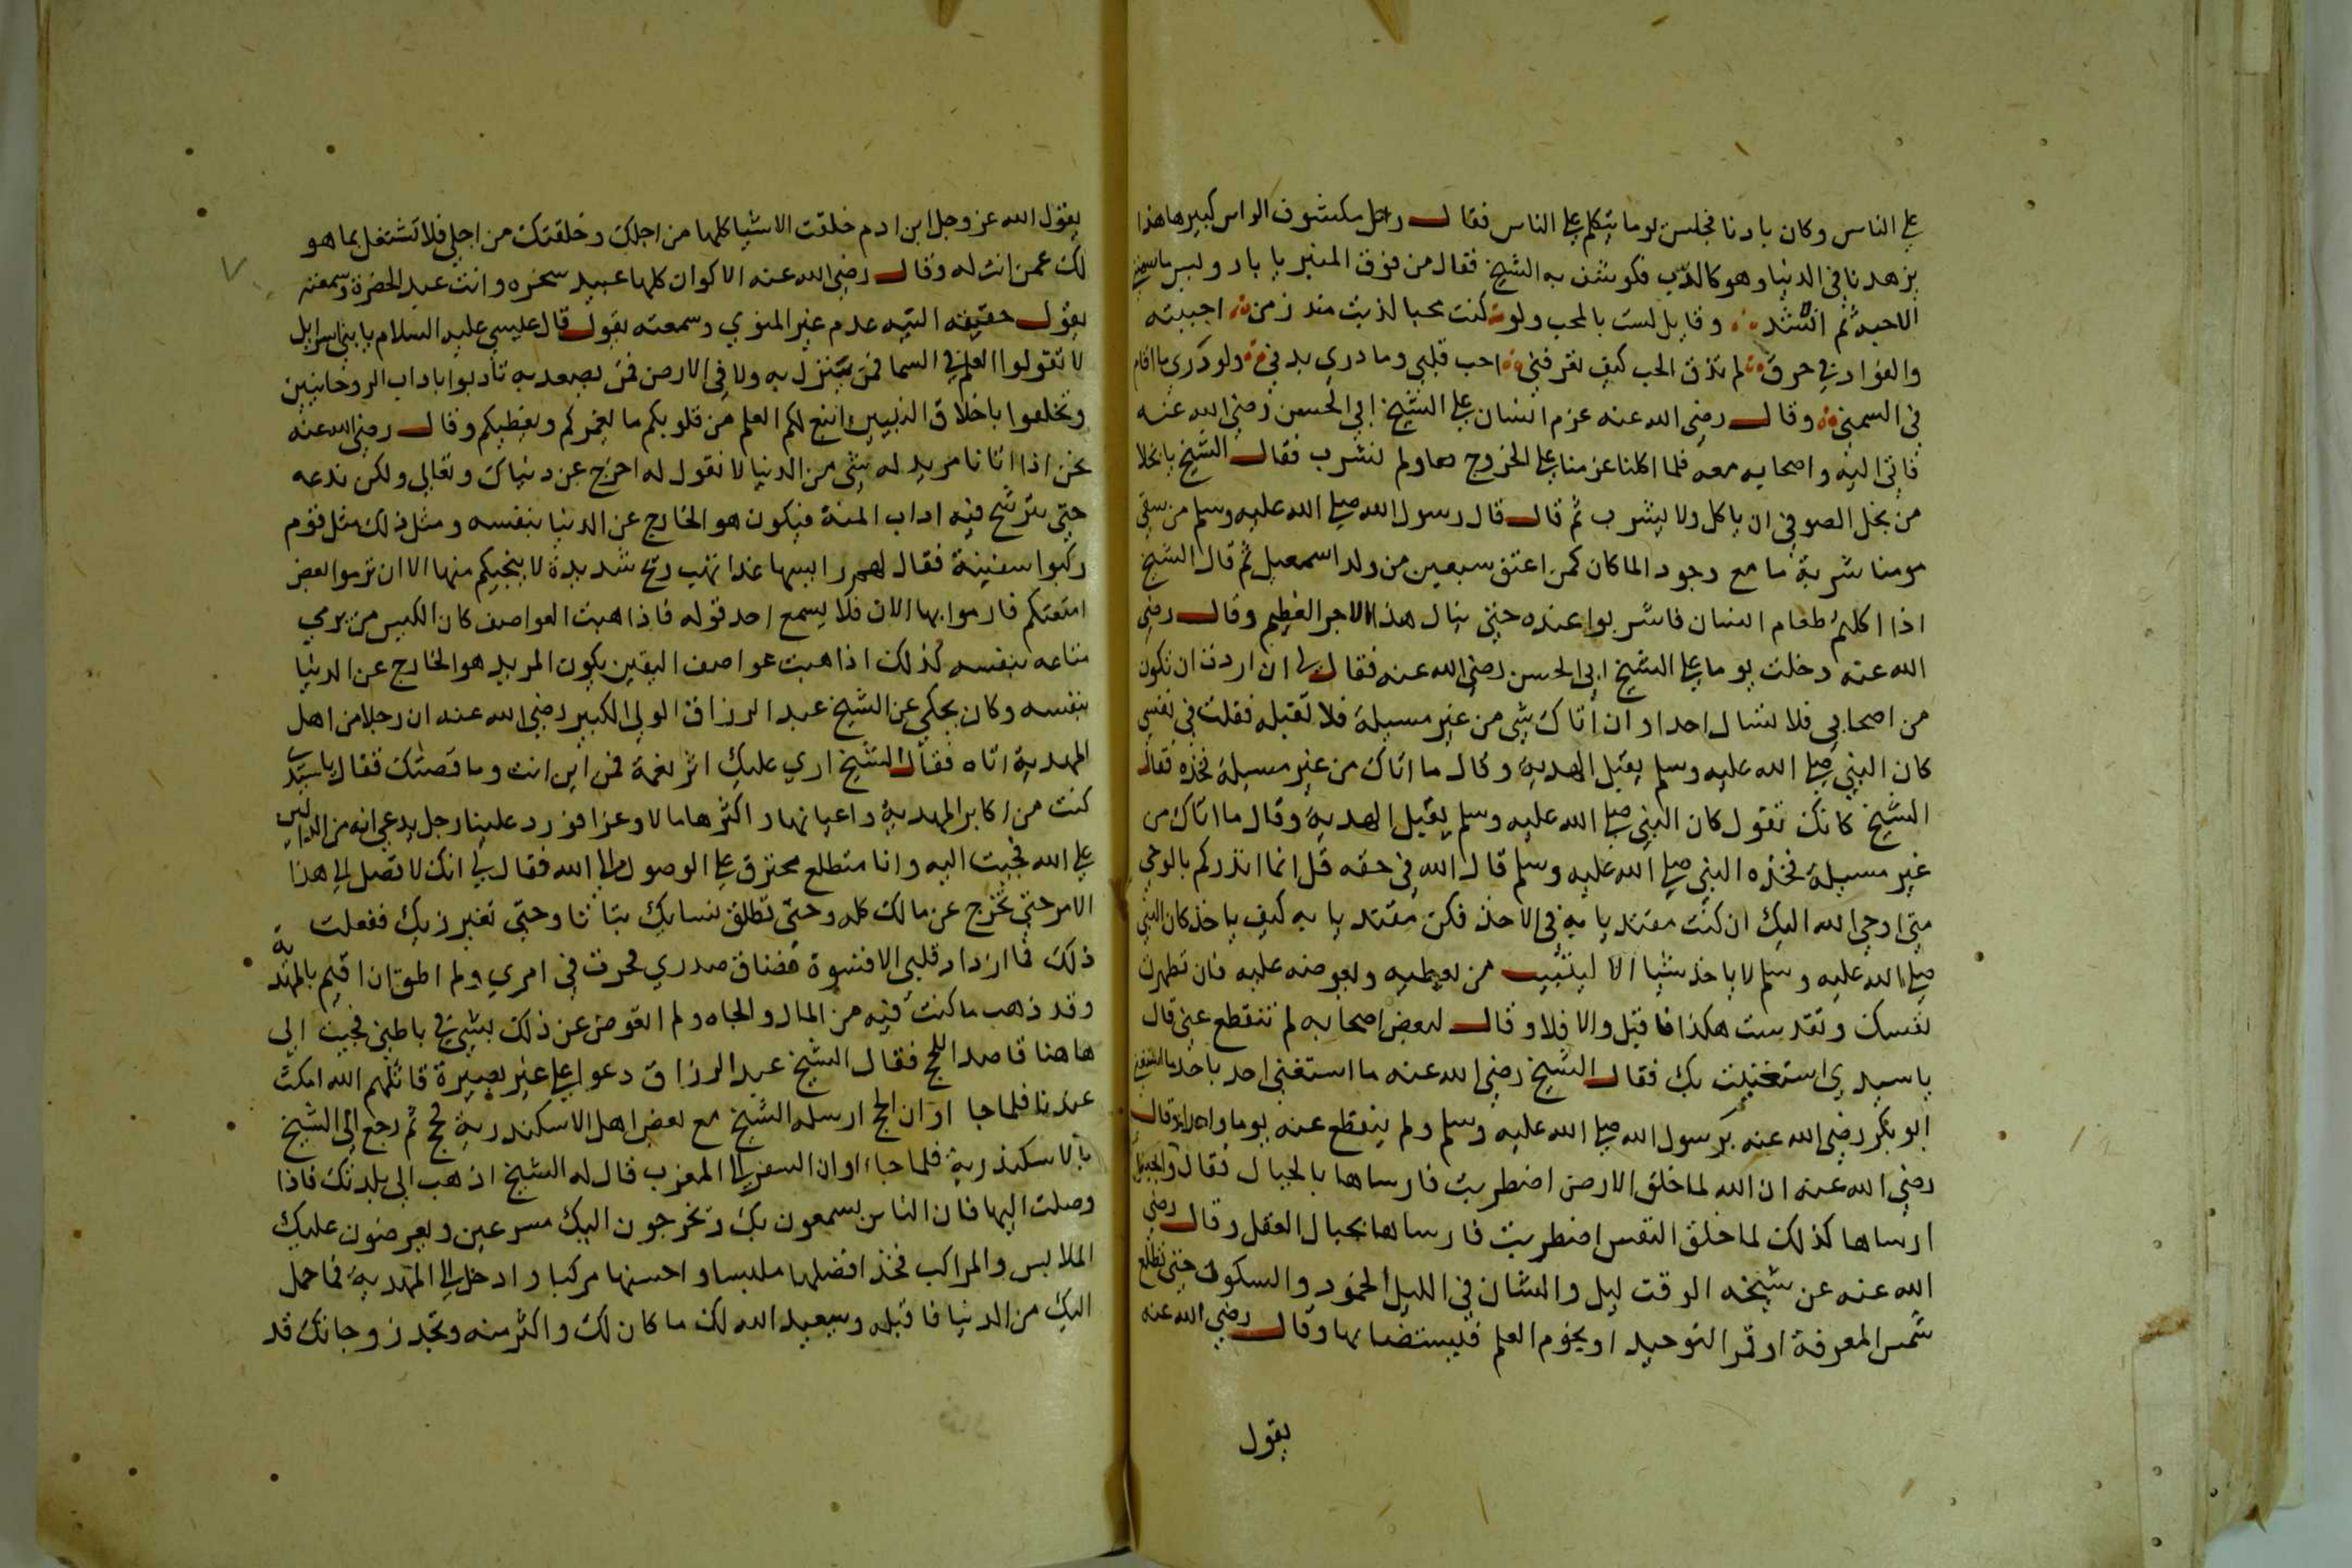 على الناس وكان بادنا فجلس يوما يتكلم على الناس فقال رجل مكشوف الراس كبيرها هذا
يزهدنا في الدنيا وهو كالدب فكوشف به الشيخ فقال من فوق المنبر يا بار وليس ما سمنني
الا حبه ثم انشد وقايل لست بالمحب ولو كنت محبا لذبت منذ زمن اجبته
والفواد في حرق لم تذق الحب كيف تعرفني احب قلبي وما دري بدني ولو دري ما اقام
في السمن وقال رضى الله عنه عزم انسان على الشيخ ابي الحسن رضي الله عنه
فاتى اليه واصحابه معه فلما اكلنا عزمنا على الخروج ولم نشرب فقال الشيخ يا بخلا
من بخل الصوفي ان ياكل ولا يشرب ثم قال قال رسول الله صلى الله عليه وسلم من سقى
مومنا شربة ما مع وجود الما كان كمن اعتق سبعين من ولد اسمعيل ثم قال الشيخ
اذا اكلتم طعام انسان فاشربوا عنده حتى ينال هذا الاجر العظيم وقال رضى
الله عنه دخلت يوما على الشيخ ابي الحسن رضي الله عنه فقال لي ان اردت ان تكون
من اصحابي فلا تسال احدا وان اتاك شي من غير مسيلة فلا تقبله فقلت في نفسي
كان النبي صلى الله عليه وسلم يقبل الهدية وقال ما اتاك من غير مسيلة فخذه فقال
الشيخ كانك تقول كان النبي صلى الله عليه وسلم يقبل الهدية وقال ما اتاك من
غير مسيلة فخذه النبي صلى الله عليه وسلم قال الله في حقه قل انما انذركم بالوحي
متى اوحى الله اليك ان كنت مقتديا به في الاخذ فكن مقتديا به كيف ياخذ كان النبي
صلى الله عليه وسلم لا ياخذ شيا الا ليثيب من يعطيه ويعوضه عليه فان تطهرت
نفسك وتقدست هكذا فاقبل والا فلا وقال لبعض اصحابه لم تنقطع عني قال
يا سيدي استغنيت بك فقال الشيخ رضى الله عنه ما استغنى احد باحد ما استغنى
ابو بكر رضى الله عنه برسول الله صلى الله عليه وسلم ولم ينقطع عنه يوما واحدا وقال
رضي الله عنه ان الله لما خلق الارض اضطربت فارساها بالجبال فقال والجبال
ارساها كذلك لما خلق النفس اضطربت فارساها بجبال العقل وقال رضي
الله عنه عن شيخه الوقت ليل والشان في الليل الخمود والسكون حتى تطلع
شمس المعرفة او قمر التوحيد او نجوم العلم فليستضا بها وقال رضي الله عنه
يقول
يقول الله عز وجل ابن ادم خلقت الاشيا كلها من اجلك وخلقتك من اجلي فلا تشتغل بما هو
لك عمن انت له وقال رضى الله عنه الاكوان كلها عبيد سخره وانت عبد الحضرة وسمعته
يقول حقيقه النيه عدم غير المنوي وسمعته يقول قال عيسى عليه السلام يا بني اسرايل
لا تقولوا العلم في السما فمن ينزل به ولا في الارض فمن يصعد به تادبوا باداب الروحانيين
وتخلقوا باخلاق النبيين انبع لكم العلم من قلوبكم ما يغمركم ويغطيكم وقال رضى الله عنه
نحن اذا اتانا مريد له شي من الدنيا لا نقول له اخرج عن دنياك وتعالى ولكن ندعه
حتى تترشح فيه اداب المنة فيكون هو الخارج عن الدنيا بنفسه ومثل ذلك مثل قوم
ركبوا سفينة فقال لهم راييسها غدا تهب ريح شديدة لا ينجيكم منها الا ان ترموا بعض
امتعتكم فارموا بها الان فلا يسمع احد قوله فاذا هبت العواصف كان الكيس من يرمي
متاعه بنفسه كذلك اذا هبت عواصف اليقين يكون المريد هو الخارج عن الدنيا
بنفسه وكان يحكي عن الشيخ عبد الرزاق الولي الكبير رضي الله عنه ان رجلا من اهل
المهدية اتاه فقال الشيخ اري عليك اثر نعمة فمن اين انت وما قصتك فقال يا سيدي
كنت من اكابر المهدية واعيانها واكثرها مالا وعزا فورد علينا رجل يدعي انه من الدالين
على الله فجيت اليه وانا متطلع محترق على الوصول الى الله فقال لي انك لا تصل الى هذا
الامر حتى تخرج عن مالك كله وحتى تطلق نسايك بتاتا وحتى تغير زيك ففعلت
ذلك فما ازداد قلبي الا قسوة فضاق صدري فحرت في امري ولم اطق ان اقيم بالمهدية
وقد ذهب ما كنت فيه من المال والجاه ولم اتعوض عن ذلك بشي في باطني فجيت الى
هاهنا قاصد اللحج فقال الشيخ عبد الرزاق دعوا على غير بصيرة قاتلهم الله امكث
عندنا فلما جا اوان الحج ارسله الشيخ مع بعض اهل الاسكندرية فحج ثم رجع الى الشيخ
بالاسكندرية فلما جاء اوان السفر الى المغرب قال له الشيخ اذهب الى بلدتك فاذا
وصلت اليها فان الناس يسمعون بك وتخرجون اليك مسرعين ويعرضون عليك
الملابس والمراكب فخذ افضلها ملبسا واحسنها مركبا وادخل الى المهدية فما حمل
اليك من الدنيا فاقبله وسيعيد الله لك ما كان لك واكثر منه وتجد زوجاتك قد